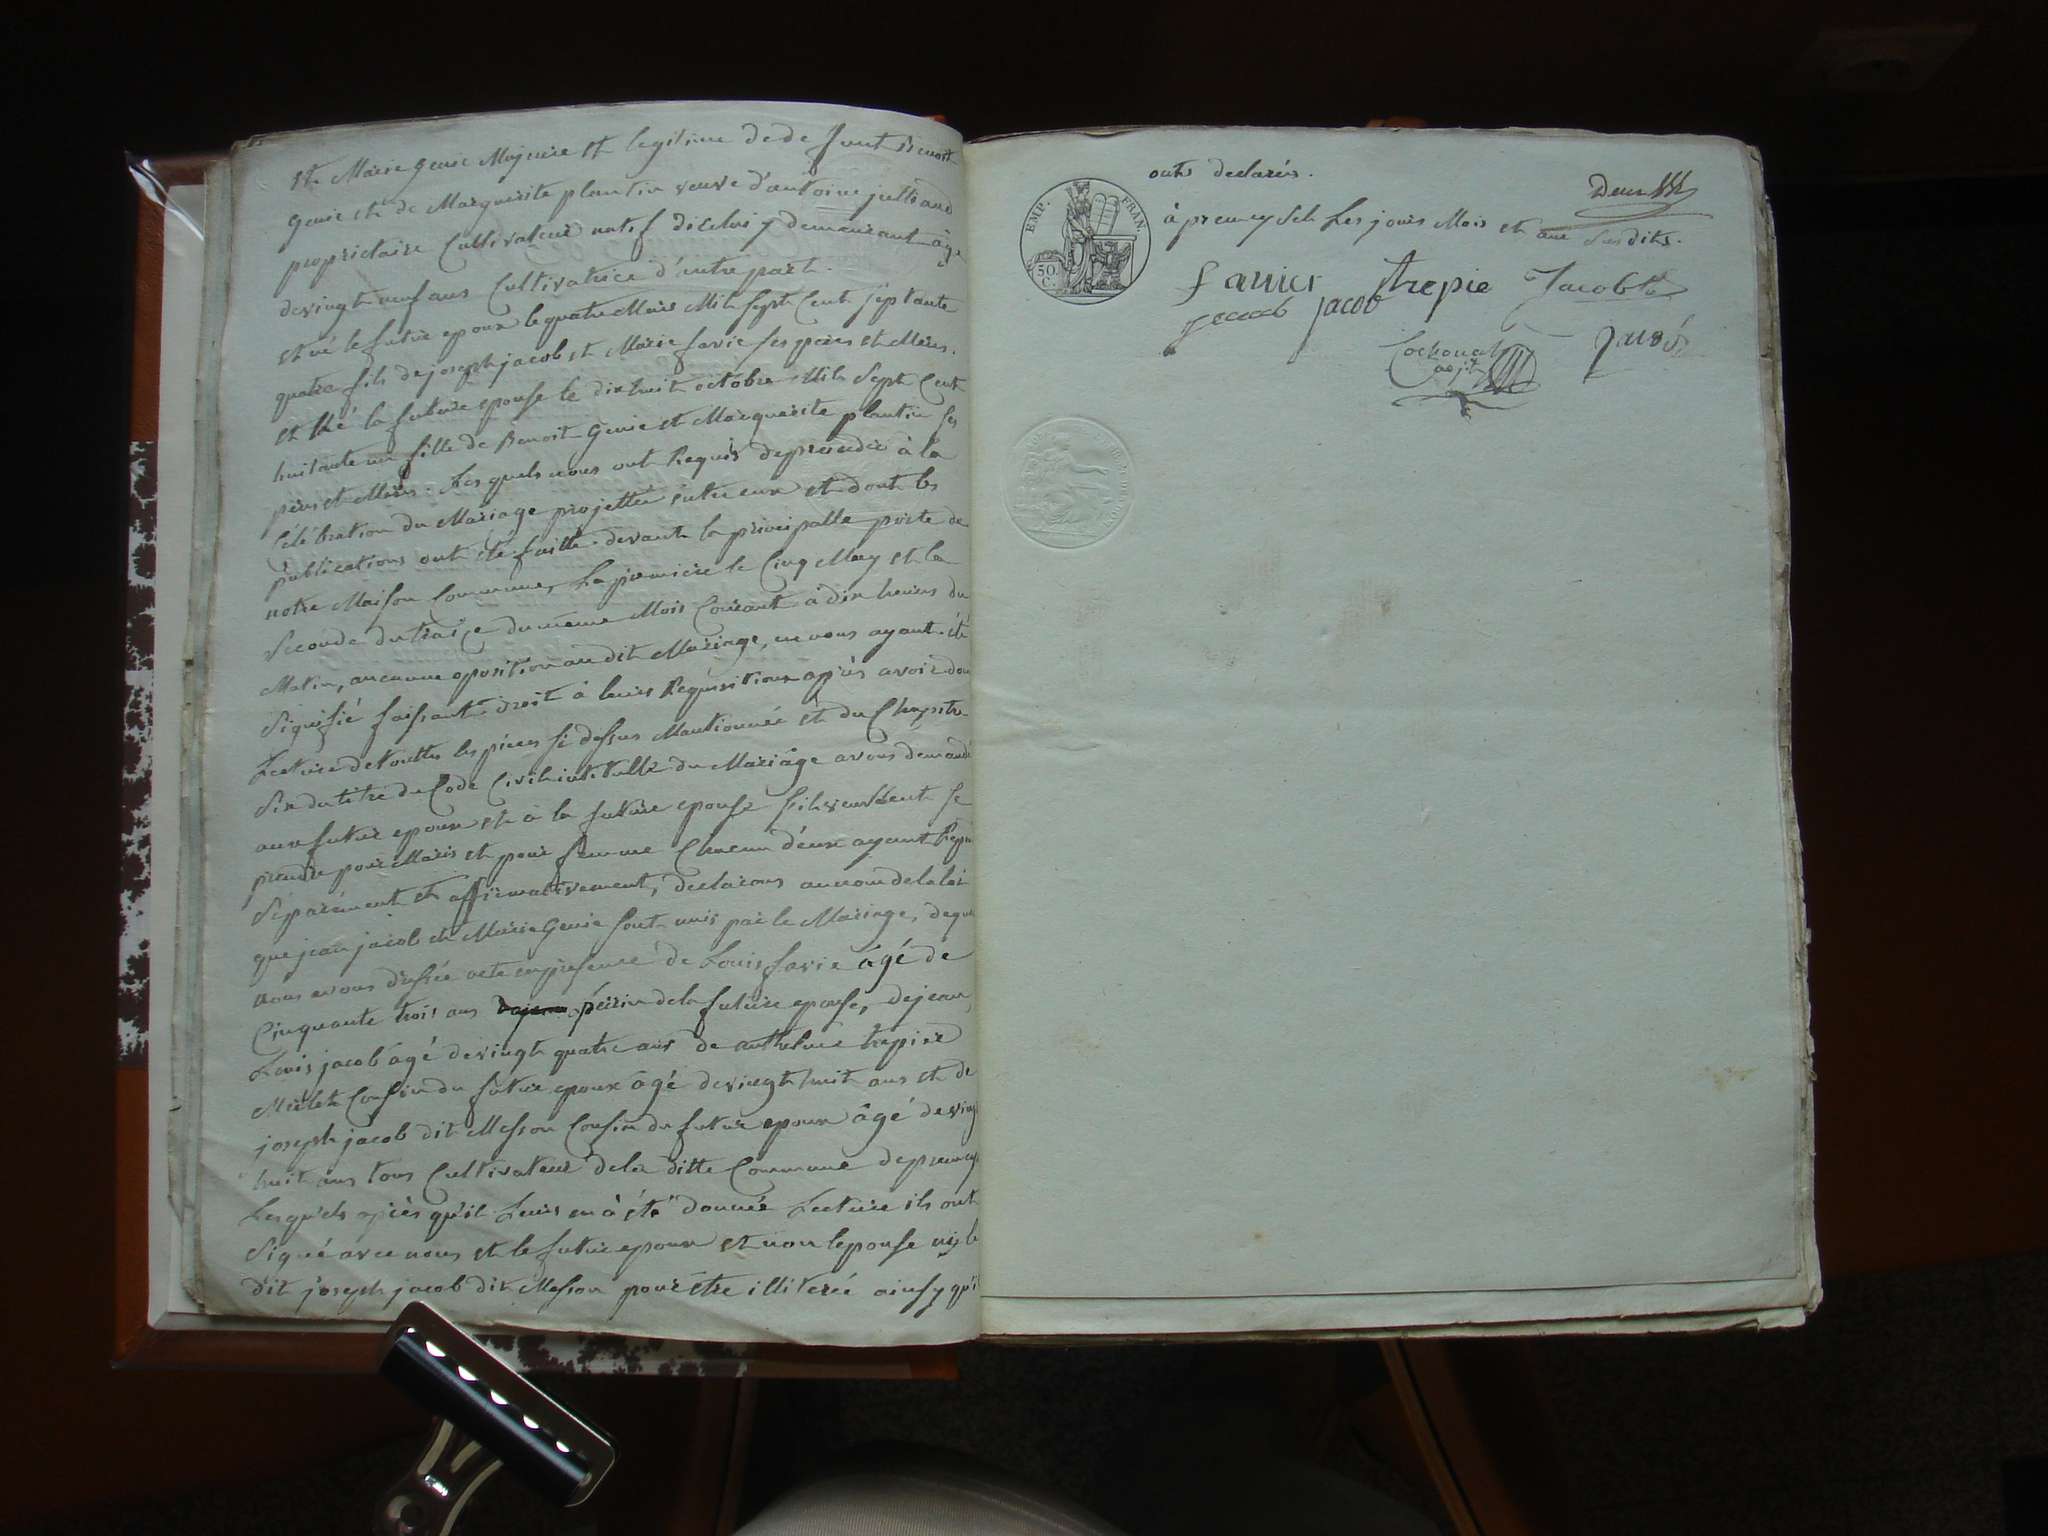 et Marie Genie Majeure et legitime de defunt Benoit
Genie et de Marguerite plantin veuve d'antoine julliand
propriétaire Cultivateur natif dicelui y demeurant âgée
de vingt neuf ans Cultivatrice d'autre part.
et né le futur epoux le quatre Mars Mil Sept Cent Septante
quatre fils de joseph jacob et Marie favie ses peres et Meres.
et né la future epouse le dix huit octobre Mil Sept Cent
huitante un fille de Benoit Genie et Marguerite plantin ses
peres et Meres. Lesquels nous ont Requis de proceder à la
Célébration du Mariage projettée entre eux et dont les
publications ont été faitte devant la principalle porte de
notre Maison Commune, La premiere le Cinq May et la
Seconde du traize du meme Mois Courant à dix heures du
Matin, aucunne oposition au dit Mariage, ne nous ayant été
Signifié faisant droit à leurs Requisitions après avoir don
Lecture de touttes les pieces si dessus Mantionnée et du Chapitre
Six du titre du Code Civil intitullé du Mariage avons demandé
au futur epoux et à la future epouse s'ils veullent se
prendre pour Maris et pour femme Chacun d'eux ayant Repon
Séparément et affirmativement, declarons au nom de la loi
que jean jacob et Marie Genie sont unis par le Mariage, de quoi
nous avons dressée acte en presence de Louis favie âgé de
Cinquante trois ans de la future epouse, de jean
Louis jacob âgé de vingt quatre ans de anthelme trepier
Millet Cousin du futur epoux âgé de vingt huit ans et de
joseph jacob dit Messon Cousin du futur epoux âgé de ving
huit ans tous Cultivateur de la ditte Commune de premey
Lesquels après qu'il Leurs en à été donnée Lecture ils ont
Signé avec nous et le futur epoux et non lepouse ny le
dit joseph jacob dit Messon pour être illiterée ainsy qu'il
onts declarés.
à premeysel Les jours Mois et an Susdits.
EMP. FRAN.
50 C.
favier trepie Jacob
jacob jacob
Cochonat
adjt
Jacob